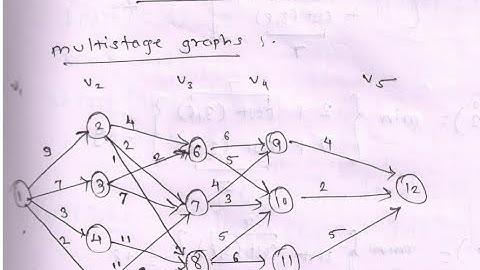 multistage graphs :
V2 V3 V4 V5
2 4 6 6 9 4
9 2 1 2 5
1 7 3 7 7 4 3 10 2 12
3 4 11 5 5
2 11 8 6 11